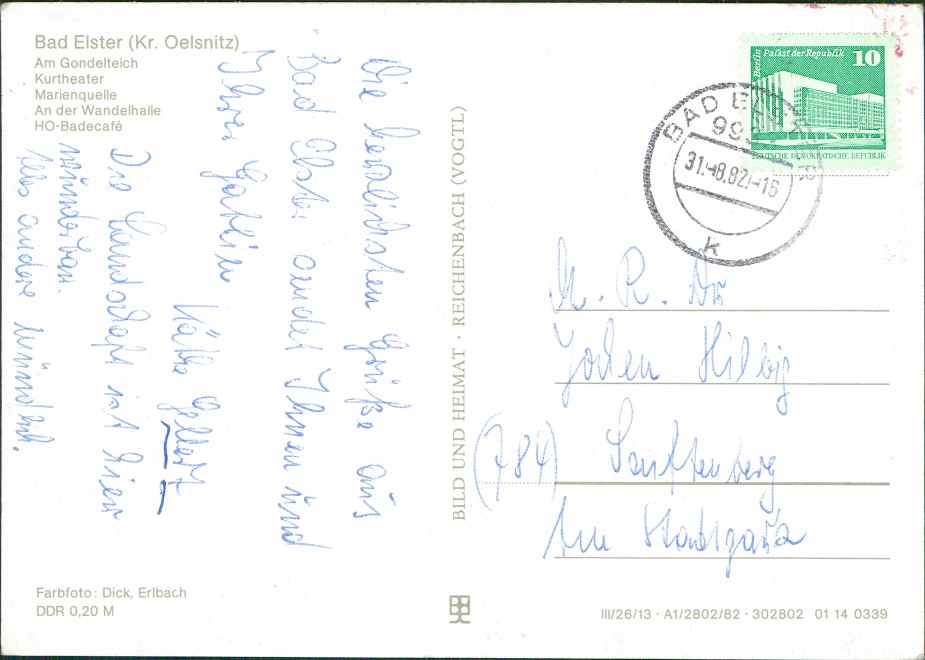 Bad Elster (Kr. Oelsnitz)
Am Gondelteich
Kurtheater
Marienquelle
An der Wandelhalle
HO-Badecafé
Die herzlichsten Grüße aus
Bad Elster sendet Ihnen und
Ihrer Gattin
Käthe Gellert
Die Landschaft ist hier
wunderbar.
Alles andere mündlich.
Farbfoto: Dick, Erlbach
DDR 0,20 M
BILD UND HEIMAT · REICHENBACH (VOGTL)
Berlin Palast der Republik 10
DEUTSCHE DEMOKRATISCHE REPUBLIK
BAD ELSTER
31.-8.82.-16
k
M. R. Dr
Jochen Hilbig
(784) Senftenberg
Am Stadtpark
III/26/13 · A1/2802/82 · 302802 01 14 0339